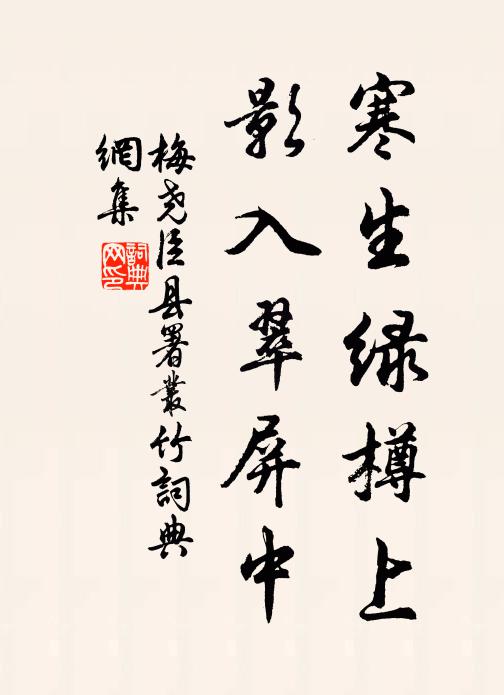 寒生绿樽上
影入翠屏中
梅尧臣县署叢竹詞典
網集
詞典网印